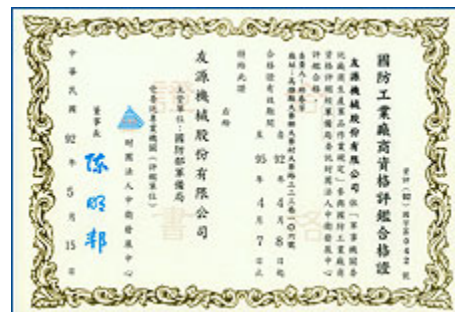 國防工業廠商資格評鑑合格證
友源機械股份有限公司 依「軍事機關委
託廠商生產軍品作業規定」參與國防工業廠商
資格評鑑經軍備局委託財團法人中衛發展中心
評鑑合格
合格證有效期間
自 92 年 4 月 8 日起
至 95 年 4 月 7 日止
特給此證
右給
友源機械股份有限公司
主管單位：國防部軍備局
受委託專業機關（評鑑單位）
財團法人中衛發展中心
董事長 陳明邦
中華民國 92 年 5 月 15 日